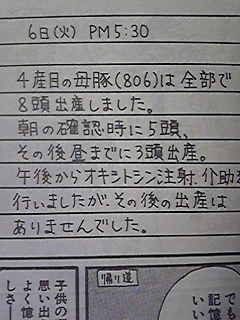 6日(火) PM5:30
4産目の母豚(806)は全部で
8頭出産しました。
朝の確認時に5頭、
その後昼までに3頭出産。
午後からオキシトシン注射、介助を
行いましたが、その後の出産は
ありませんでした。
帰り道
でも
記憶
いい
子供の
思い出
よく憶
しさ